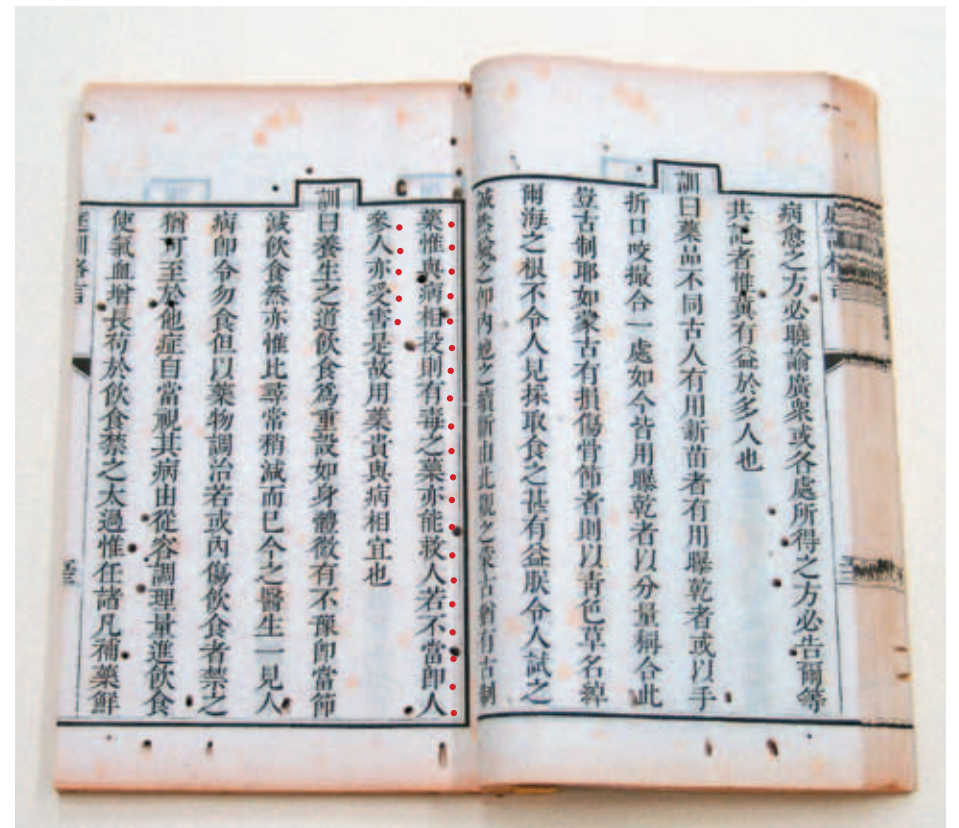 庭訓格言
病愈之方必曉諭廣衆或各處所得之方必告爾等
共記者惟冀有益於多人也
訓曰藥品不同古人有用新苗者有用曝乾者或以手
折口咬撮合一處如今皆用曝乾者以分量稱合此
豈古制耶如蒙古有損傷骨節者則以青色草名綽
爾海之根不令人見採取食之甚有益朕令人試之
誠然驗之即內地之續斷由此觀之蒙古猶有古制
藥惟與病相投則有毒之藥亦能救人若不當即人
參人亦受害是故用藥貴與病相宜也
訓曰養生之道飲食爲重設如身體微有不豫即當節
減飲食然亦惟比尋常稍減而已今之醫生一見人
病即令勿食但以藥物調治若或內傷飲食者禁之
猶可至於他症自當視其病由從容調理量進飲食
使氣血增長苟於飲食禁之太過惟任諸凡補藥鮮
庭訓格言